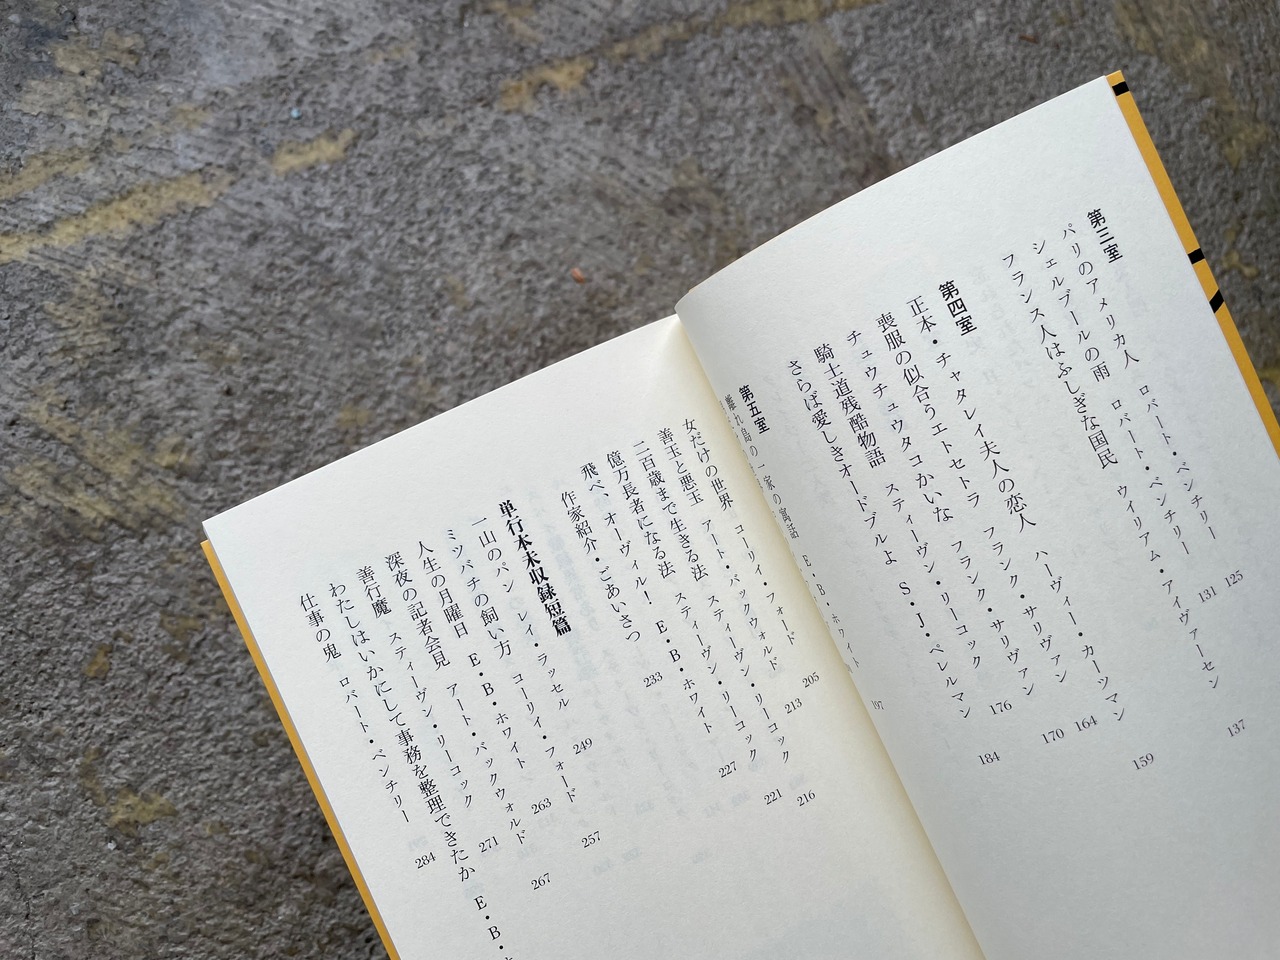 第三室
パリのアメリカ人 ロバート・ベンチリー 125
シェルブールの雨 ロバート・ベンチリー 131
フランス人はふしぎな国民 ウイリアム・アイヴァーセン 137
第四室
正本・チャタレイ夫人の恋人 ハーヴィー・カーツマン 159
喪服の似合うエトセトラ フランク・サリヴァン 164
チュウチュウタコかいな フランク・サリヴァン 170
騎士道残酷物語 スティーヴン・リーコック 176
さらば愛しきオードブルよ S・J・ペレルマン 184
第五室
離れ島の一家の寓話 E・B・ホワイト 197
女だけの世界 コーリイ・フォード 205
善玉と悪玉 アート・バックウォルド 213
二百歳まで生きる法 スティーヴン・リーコック 216
億万長者になる法 スティーヴン・リーコック 221
飛べ、オーヴィル! E・B・ホワイト 227
作家紹介・ごあいさつ 233
単行本未収録短篇
一山のパン レイ・ラッセル 249
ミツバチの飼い方 コーリイ・フォード 257
人生の月曜日 E・B・ホワイト 263
深夜の記者会見 アート・バックウォルド 267
善行魔 スティーヴン・リーコック 271
わたしはいかにして事務を整理できたか E・B・
仕事の鬼 ロバート・ベンチリー 284